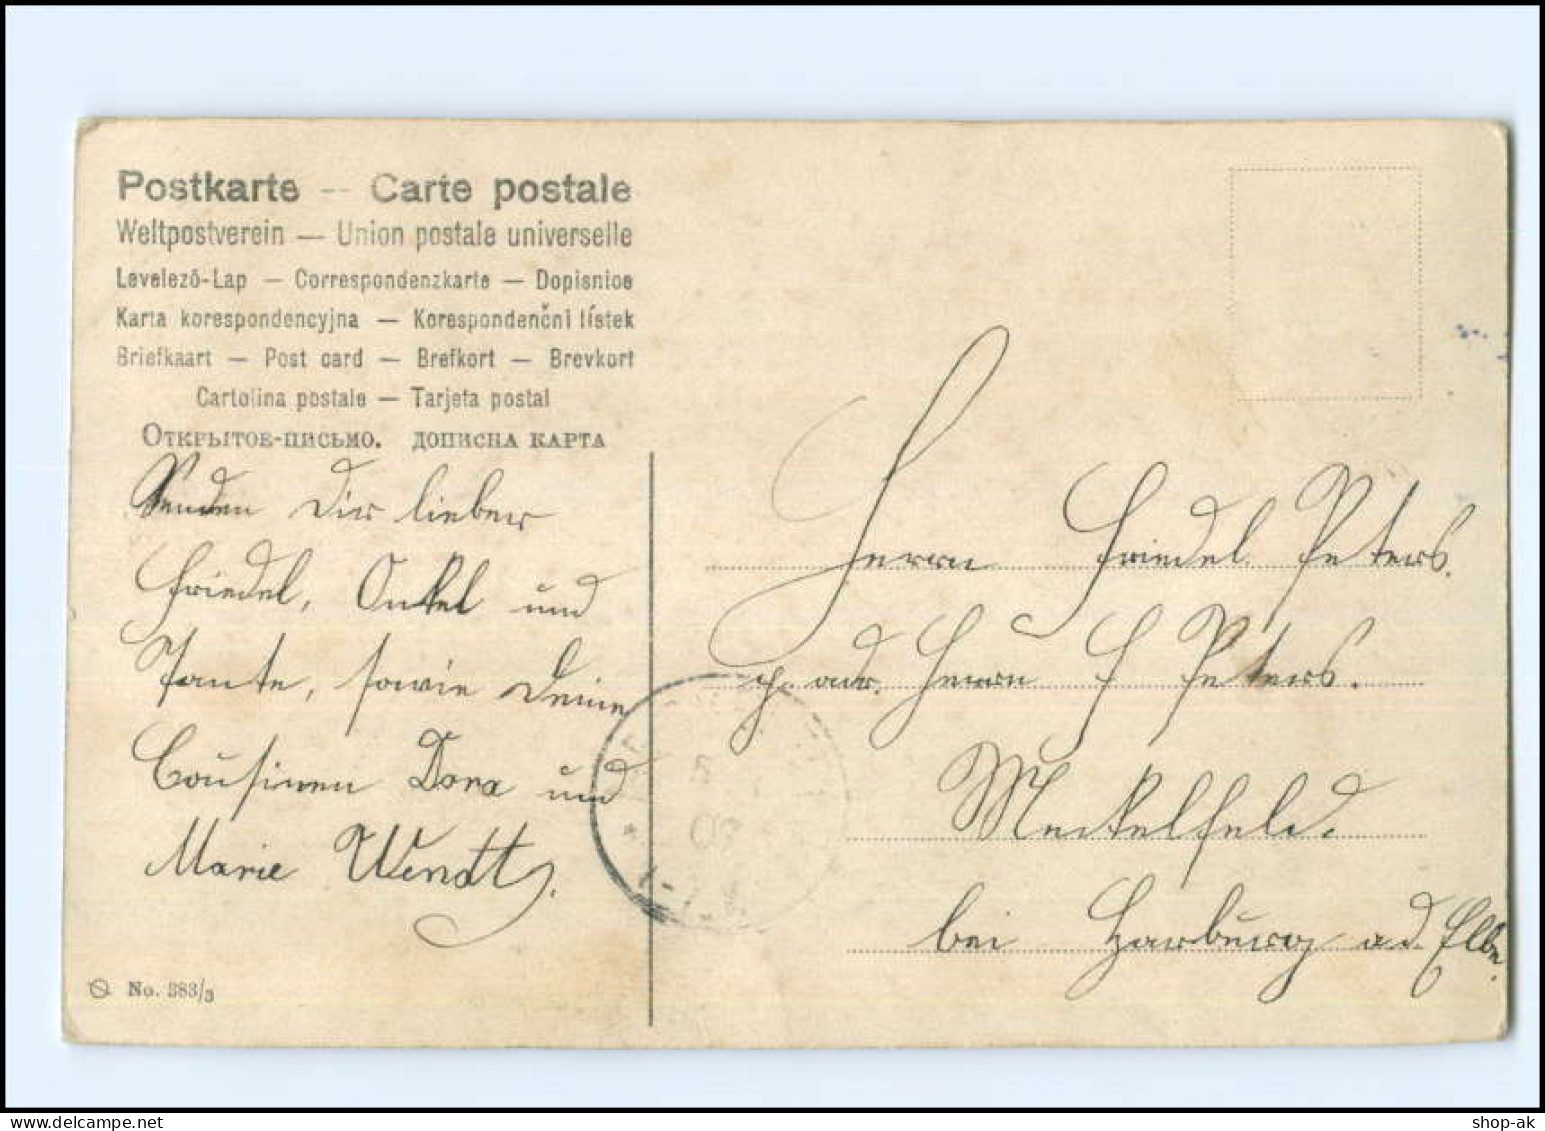 Postkarte — Carte postale
Weltpostverein — Union postale universelle
Levelezö-Lap — Correspondenzkarte — Dopisnice
Karta korespondencyjna — Korespondenční lístek
Briefkaart — Post card — Brefkort — Brevkort
Cartolina postale — Tarjeta postal
Открытое-письмо. дописна карта
Senden Dir lieber
Friedel, Onkel und
Tante, sowie Deine
Cousinen Dora und
Marie Wendt.
No. 383/3
Herrn Friedel Peters.
p. adr. Herrn F Peters.
Meckelfeld.
bei Harburg a. d. Elbe.
shop-ak